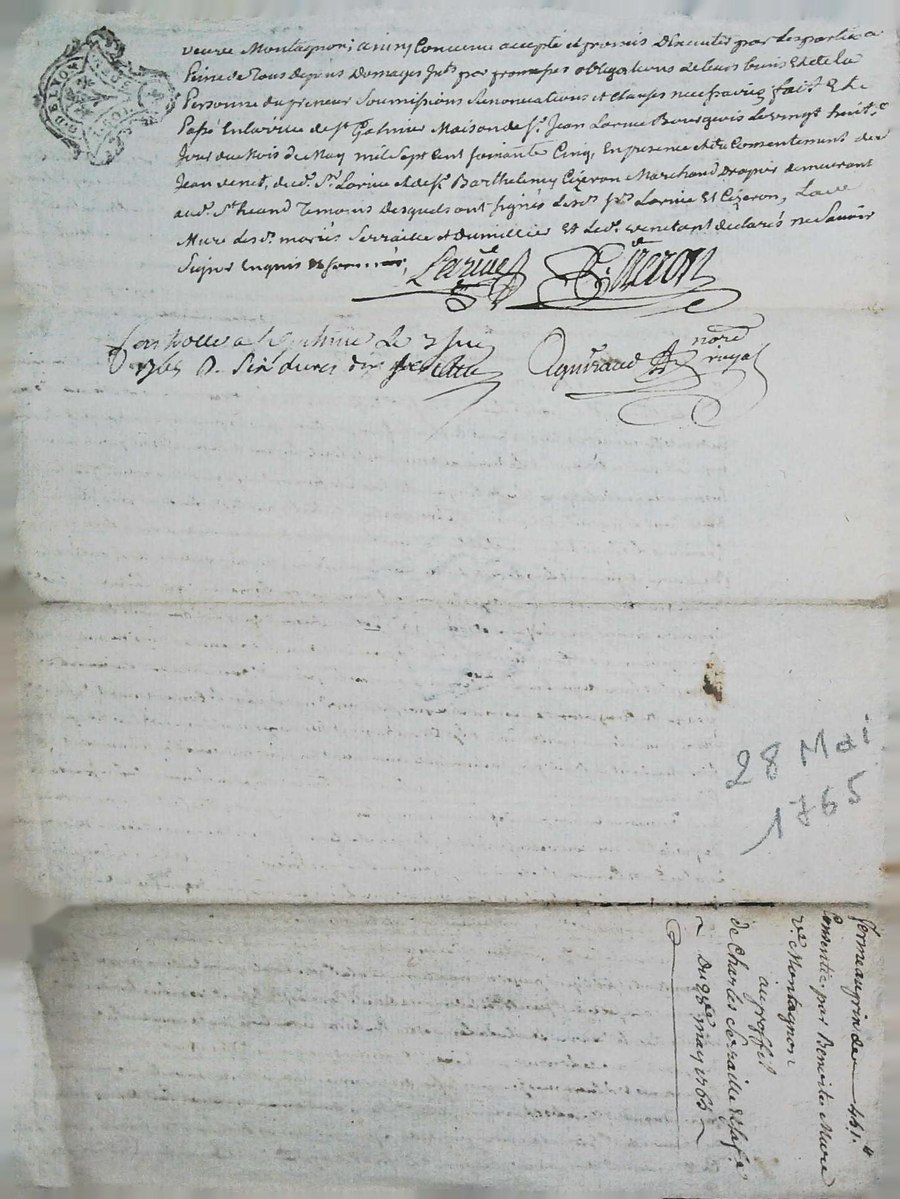 veuve Montagnon; ainsy Convenu accepté et promis Dexecuter par Les parties a
Peine de Tous depens Domages Jnts par promesses obligations de leurs biens Et de la
Personne du preneur Soumissions Renonciations et Clauses necessaires fait Et
Passé En la ville de St Galmier Maison de Sr Jean Larive Bourgeois Le vingt huit
Jour du Mois de May mil Sept Cent soixante Cinq, En presence et du Consentement de
Jean venet, dud. Sr Larive et de Sr Barthelemy Cizeron Marchand Drapier demeurant
aud. St heand Temoins Lesquels ont signés Lesd. Srs Larive Et Cizeron, Lad.
Mure Lesd. mariés Serraille et Et Led. venet ont declarés ne Savoir
Signer Enquis
Larive Cizeron
Controllé a St Galmier Le 7
1765 R. Six livres dix
nore
royal
28 Mai
1765
ferme au prix de 461.
consentie par Benoite Mure
ve Montagnon
au proffit
de Charles Serraille
Du 28e may 1765